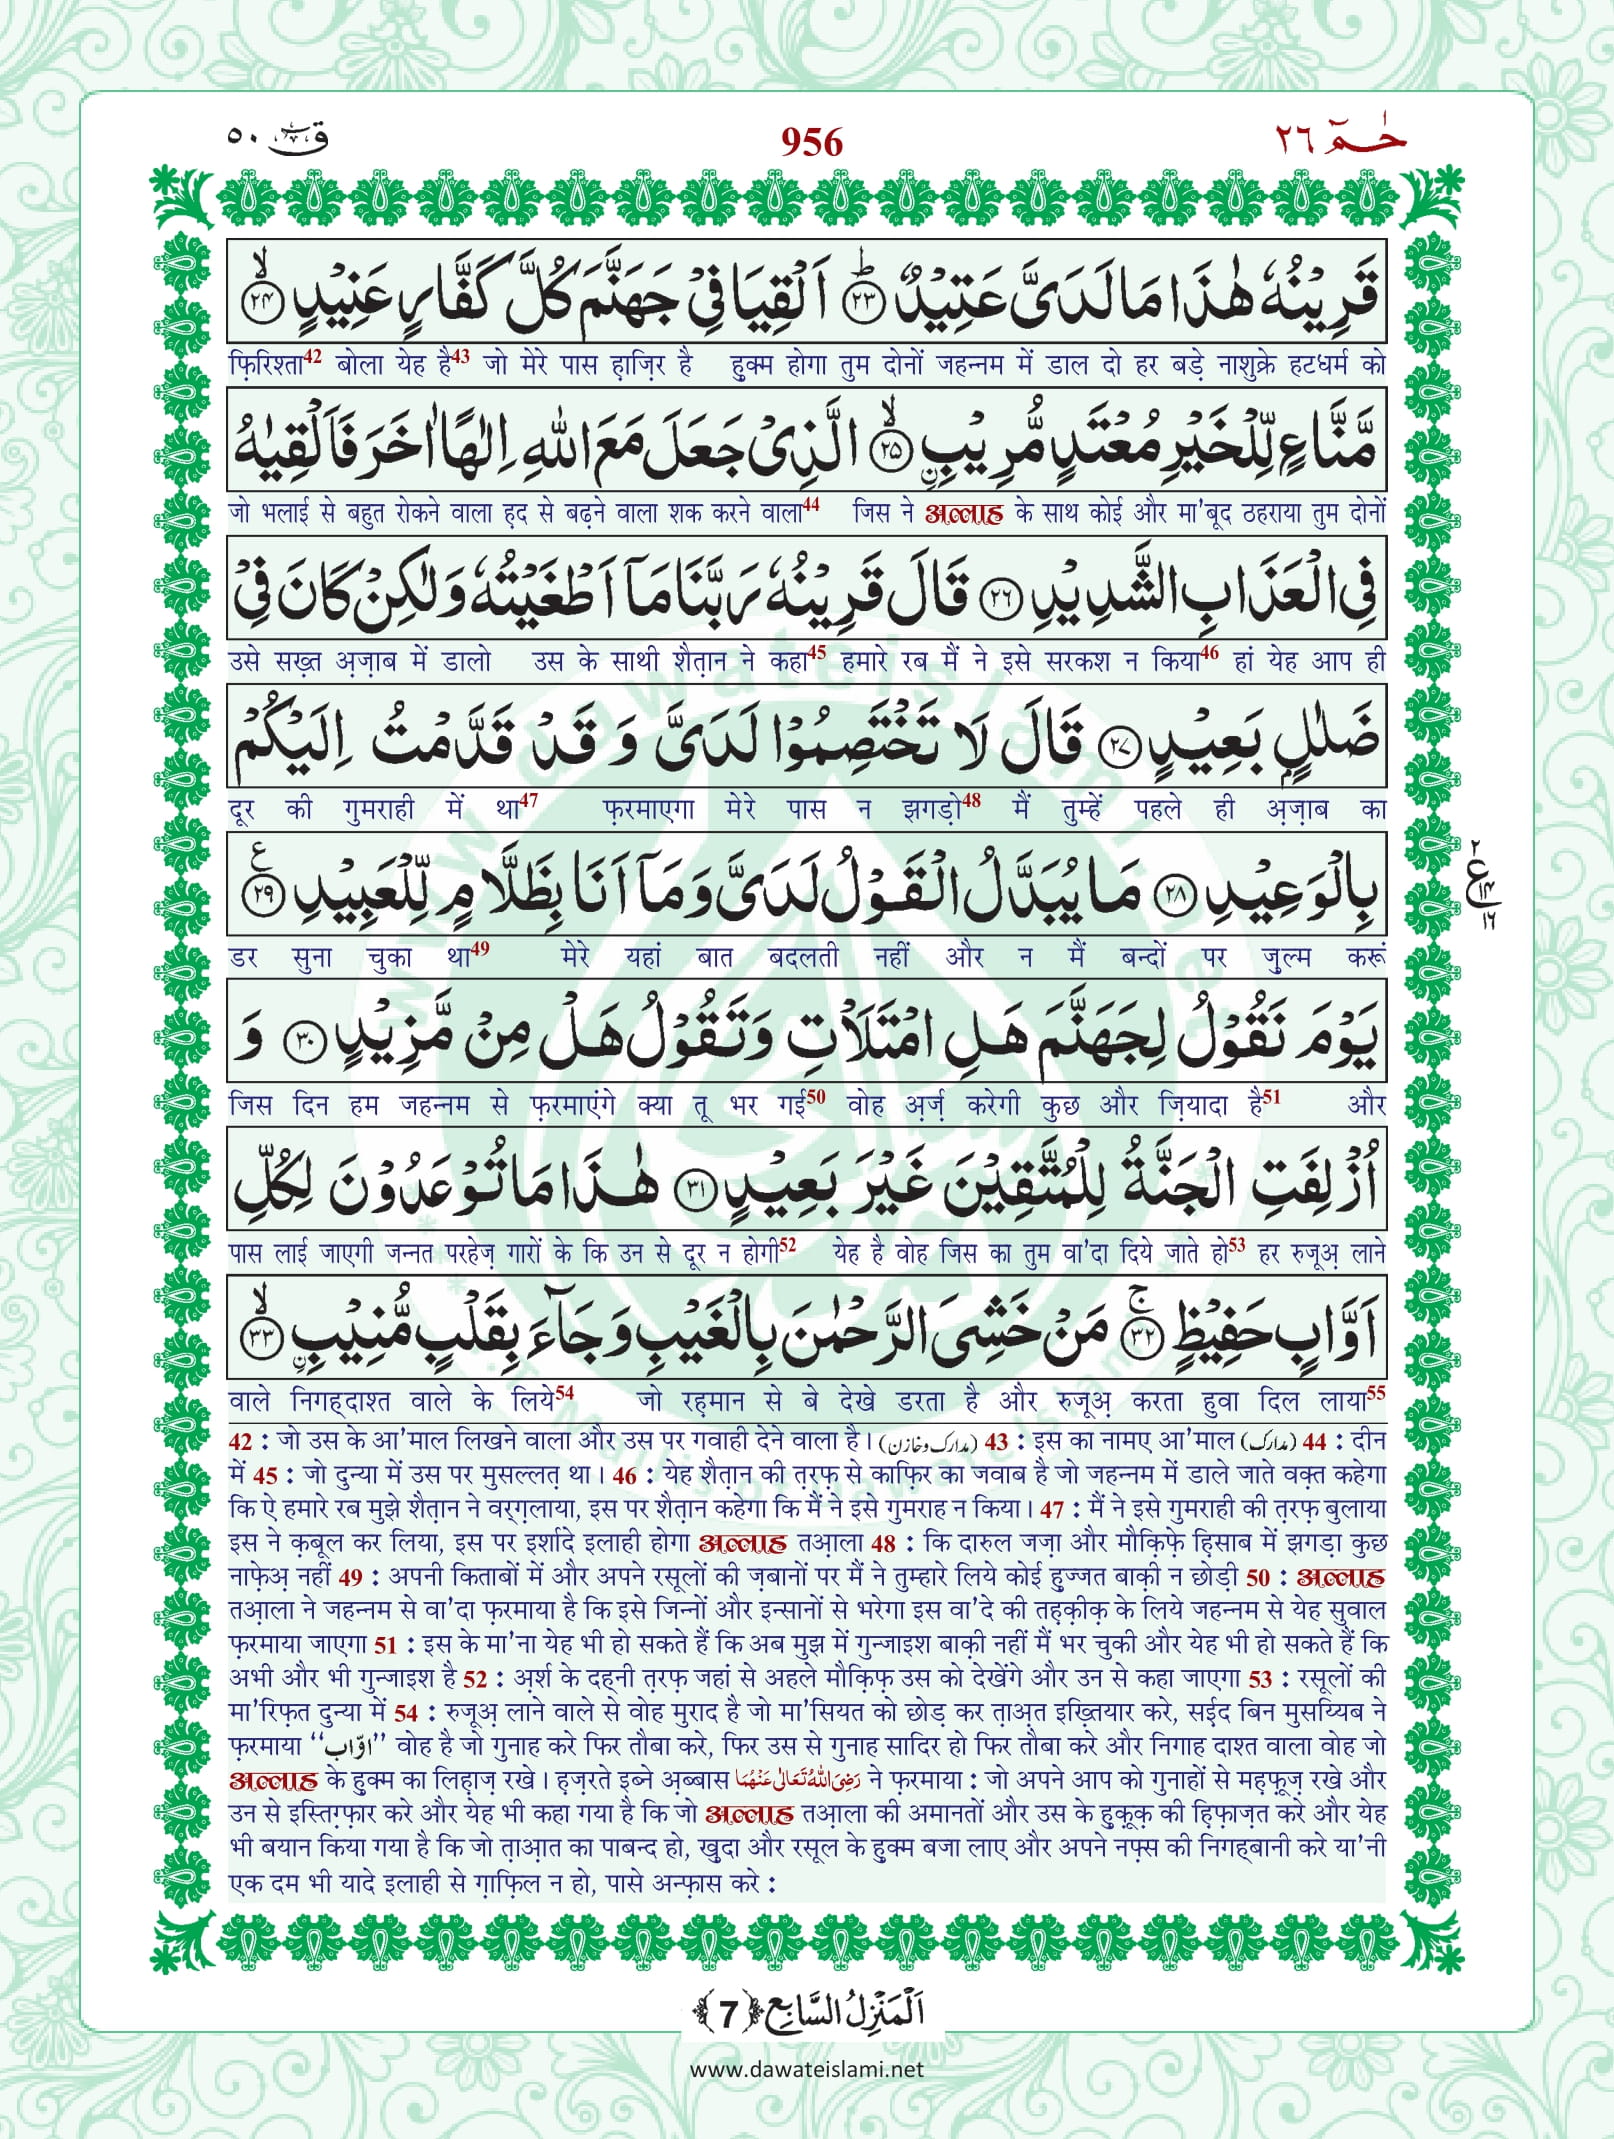 قٓ ٥٠ 956 حٰمٓ ٢٦
قَرِیْنُهٗ هٰذَا مَا لَدَیَّ عَتِیْدٌؕ۝۲۳ اَلْقِیَا فِیْ جَهَنَّمَ كُلَّ كَفَّارٍ عَنِیْدٍۙ۝۲۴
फ़िरिश्ता42 बोला येह है43 जो मेरे पास ह़ाज़िर है हुक्म होगा तुम दोनों जहन्नम में डाल दो हर बड़े नाशुक्रे हटधर्म को
مَّنَّاعٍ لِّلْخَیْرِ مُعْتَدٍ مُّرِیْبِۙ۝۲۵ الَّذِیْ جَعَلَ مَعَ اللّٰهِ اِلٰهًا اٰخَرَ فَاَلْقِیٰهُ
जो भलाई से बहुत रोकने वाला ह़द से बढ़ने वाला शक करने वाला44 जिस ने अल्लाह के साथ कोई और मा'बूद ठहराया तुम दोनों
فِی الْعَذَابِ الشَّدِیْدِ۝۲۶ قَالَ قَرِیْنُهٗ رَبَّنَا مَاۤ اَطْغَیْتُهٗ وَ لٰكِنْ كَانَ فِیْ
उसे सख़्त अ़ज़ाब में डालो उस के साथी शैत़ान ने कहा45 हमारे रब मैं ने इसे सरकश न किया46 हां येह आप ही
ضَلٰلٍۭ بَعِیْدٍ۝۲۷ قَالَ لَا تَخْتَصِمُوْا لَدَیَّ وَ قَدْ قَدَّمْتُ اِلَیْكُمْ
दूर की गुमराही में था47 फ़रमाएगा मेरे पास न झगड़ो48 मैं तुम्हें पहले ही अ़ज़ाब का
بِالْوَعِیْدِ۝۲۸ مَا یُبَدَّلُ الْقَوْلُ لَدَیَّ وَ مَاۤ اَنَا بِظَلَّامٍ لِّلْعَبِیْدِ۝۲۹ ع
٢ ع ١٤ ١٦
डर सुना चुका था49 मेरे यहां बात बदलती नहीं और न मैं बन्दों पर ज़ुल्म करूं
یَوْمَ نَقُوْلُ لِجَهَنَّمَ هَلِ امْتَلَاْتِ وَ تَقُوْلُ هَلْ مِنْ مَّزِیْدٍ۝۳۰ وَ
जिस दिन हम जहन्नम से फ़रमाएंगे क्या तू भर गई50 वोह अ़र्ज़ करेगी कुछ और ज़ियादा है51 और
اُزْلِفَتِ الْجَنَّةُ لِلْمُتَّقِیْنَ غَیْرَ بَعِیْدٍ۝۳۱ هٰذَا مَا تُوْعَدُوْنَ لِكُلِّ
पास लाई जाएगी जन्नत परहेज़ गारों के कि उन से दूर न होगी52 येह है वोह जिस का तुम वा'दा दिये जाते हो53 हर रुजूअ़ लाने
اَوَّابٍ حَفِیْظٍۚ۝۳۲ مَنْ خَشِیَ الرَّحْمٰنَ بِالْغَیْبِ وَ جَآءَ بِقَلْبٍ مُّنِیْبِۙ۝۳۳
वाले निगह्दाश्त वाले के लिये54 जो रह़मान से बे देखे डरता है और रुजूअ़ करता हुवा दिल लाया55
42 : जो उस के आ'माल लिखने वाला और उस पर गवाही देने वाला है। (مدارک و خازن) 43 : इस का नामए आ'माल (مدارک) 44 : दीन
में 45 : जो दुन्या में उस पर मुसल्लत़ था। 46 : येह शैत़ान की त़रफ़ से काफ़िर का जवाब है जो जहन्नम में डाले जाते वक़्त कहेगा
कि ऐ हमारे रब मुझे शैत़ान ने वर्ग़लाया, इस पर शैत़ान कहेगा कि मैं ने इसे गुमराह न किया। 47 : मैं ने इसे गुमराही की त़रफ़ बुलाया
इस ने क़बूल कर लिया, इस पर इर्शादे इलाही होगा अल्लाह तआ़ला 48 : कि दारुल जज़ा और मौक़िफ़े ह़िसाब में झगड़ा कुछ
नाफ़ेअ़ नहीं 49 : अपनी किताबों में और अपने रसूलों की ज़बानों पर मैं ने तुम्हारे लिये कोई हुज्जत बाक़ी न छोड़ी 50 : अल्लाह
तआ़ला ने जहन्नम से वा'दा फ़रमाया है कि इसे जिन्नों और इन्सानों से भरेगा इस वा'दे की तह़क़ीक़ के लिये जहन्नम से येह सुवाल
फ़रमाया जाएगा 51 : इस के मा'ना येह भी हो सकते हैं कि अब मुझ में गुन्जाइश बाक़ी नहीं मैं भर चुकी और येह भी हो सकते हैं कि
अभी और भी गुन्जाइश है 52 : अ़र्श के दहनी त़रफ़ जहां से अहले मौक़िफ़ उस को देखेंगे और उन से कहा जाएगा 53 : रसूलों की
मा'रिफ़त दुन्या में 54 : रुजूअ़ लाने वाले से वोह मुराद है जो मा'सियत को छोड़ कर त़ाअ़त इख़्तियार करे, सई़द बिन मुसय्यिब ने
फ़रमाया ‘‘اوّاب’’ वोह है जो गुनाह करे फिर तौबा करे, फिर उस से गुनाह सादिर हो फिर तौबा करे और निगाह दाश्त वाला वोह जो
अल्लाह के हुक्म का लिह़ाज़ रखे। ह़ज़रते इब्ने अ़ब्बास رَضِیَ اللّٰهُ تَعَالٰی عَنْهُمَا ने फ़रमाया : जो अपने आप को गुनाहों से मह़फ़ूज़ रखे और
उन से इस्तिग़्फ़ार करे और येह भी कहा गया है कि जो अल्लाह तआ़ला की अमानतों और उस के हुक़ूक़ की ह़िफ़ाज़त करे और येह
भी बयान किया गया है कि जो त़ाआ़त का पाबन्द हो, ख़ुदा और रसूल के हुक्म बजा लाए और अपने नफ़्स की निगह्बानी करे या'नी
एक दम भी यादे इलाही से ग़ाफ़िल न हो, पासे अन्फ़ास करे :
اَلْمَنْزِلُ السَّابِع ﴿7﴾
www.dawateislami.net